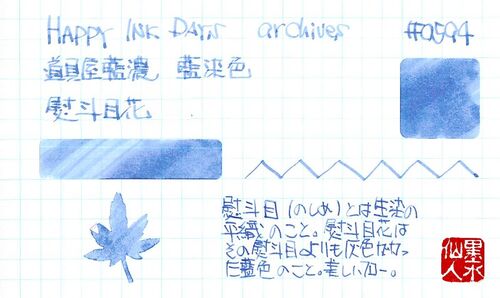 HAPPY INK DAYS archives #0594
道具屋藍濃 藍染色
熨斗目花
熨斗目(のしめ)とは生染の
平織のこと。熨斗目花は
その熨斗目よりも灰色がかっ
た藍色のこと。美しいカー。
墨水
仙人